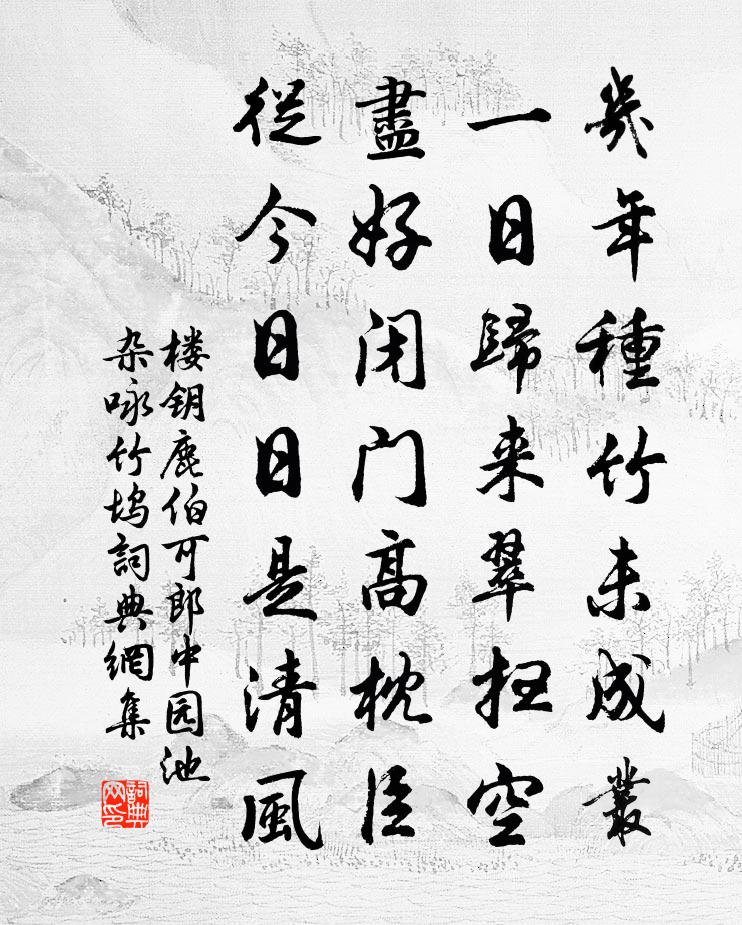 幾年種竹未成叢
一日歸来翠空
盡好闭门高枕卧
從今日日是清風
楼钥鹿伯可郎中园池
杂咏竹坞詞典網集
詞典
网印